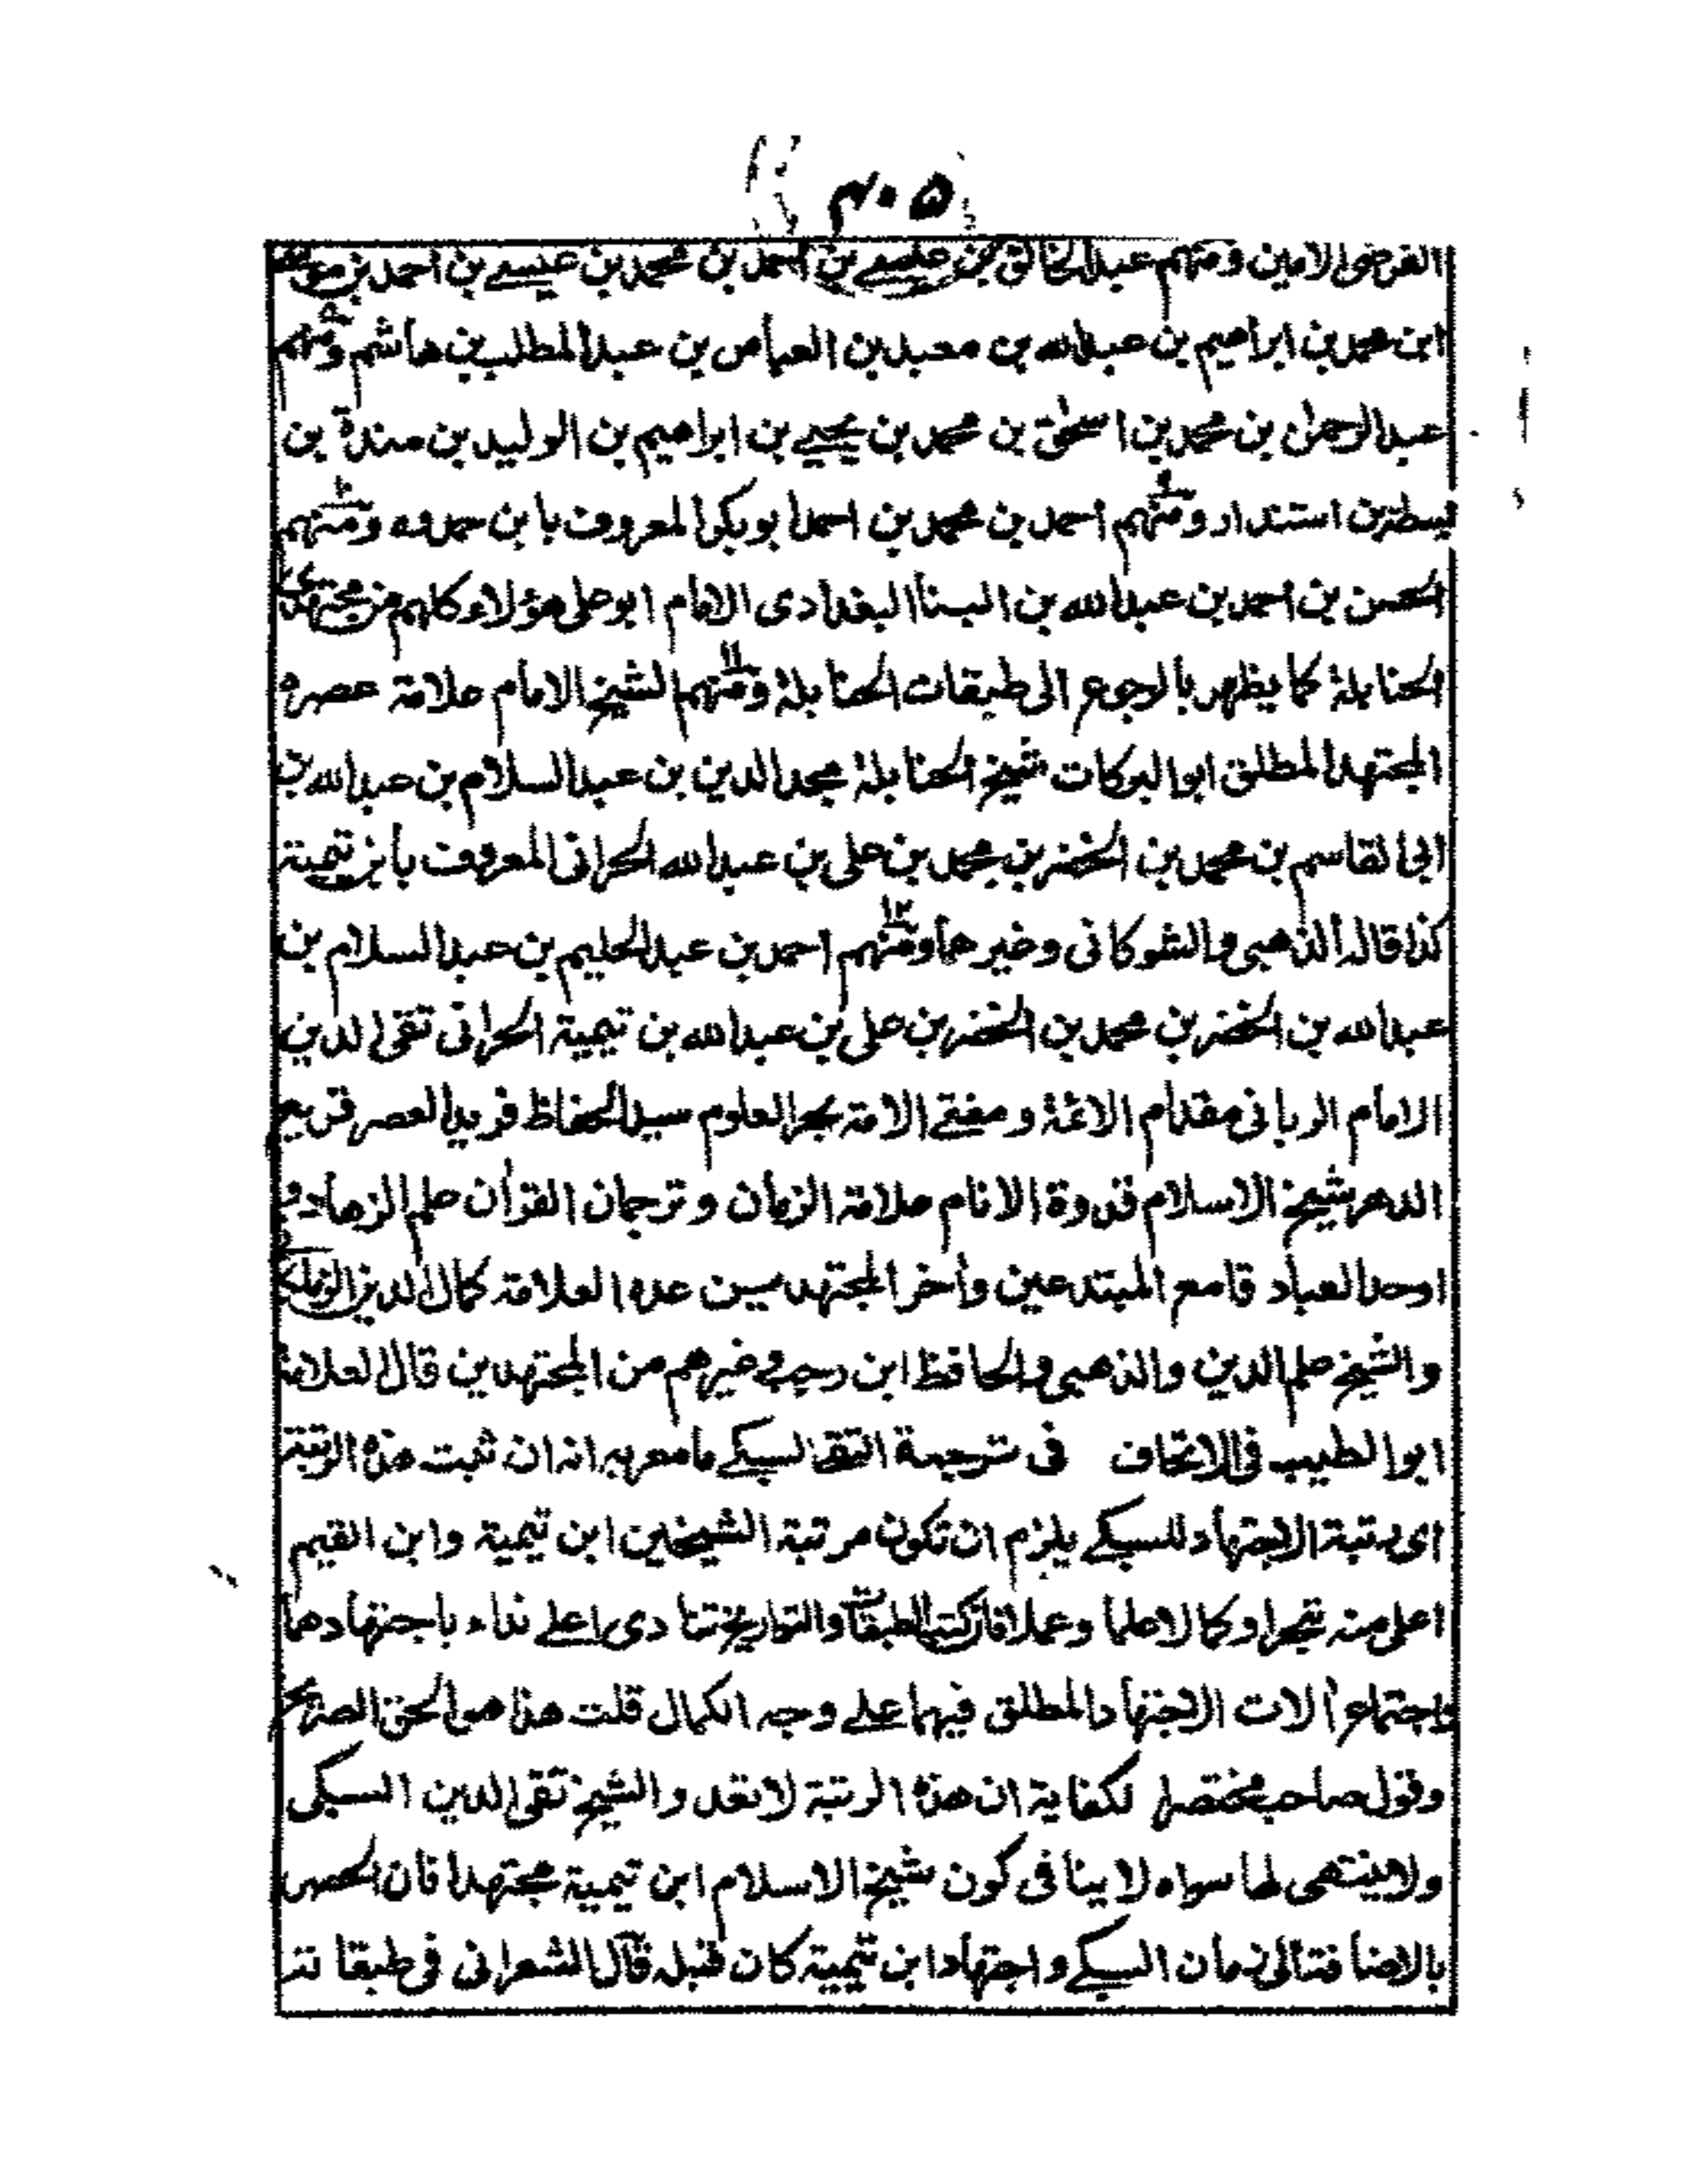 ۴۰۵
الفرضی الامین ومنهم عبدالخالق بن عیسے بن احمد بن محمد بن عیسے بن احمد بن موسی
ابن محمد بن ابراهیم بن عبدالله بن معبد بن العباس بن عبدالمطلب بن هاشم ومنهم
عبدالرحمن بن محمد بن اسحٰق بن محمد بن یحییے بن ابراهیم بن الولید بن مندة بن
بن استندار ومنهم احمد بن محمد بن احمد ابوبکر المعروف بابن حمدوه ومنهم
الحسن بن احمد بن عبدالله بن البنا البغدادی الامام ابوعلی هؤلاء کلهم من مجتهدی
الحنابلة کما یظهر بالرجوع الی طبقات الحنابلة ومنهم الشیخ الامام علامة عصره
المجتهد المطلق ابو البرکات شیخ الحنابلة مجد الدین بن عبدالسلام بن عبدالله بن
ابی القاسم بن محمد بن الخضر بن محمد بن علی بن عبدالله الحرانی المعروف بابن تیمیة
کذا قاله الذهبی والشوکانی وغیرهما ومنهم احمد بن عبدالحلیم بن عبدالسلام بن
عبدالله بن الخضر بن محمد بن الخضر بن علی بن عبدالله بن تیمیة الحرانی تقی الدین
الامام الربانی مقدام الائمة ومفتے الامة بحر العلوم سید الحفاظ فرید العصر قریع
الدهر شیخ الاسلام قدوة الانام علامة الزمان وترجمان القرآن علم الزهاد و
اوحد العباد قامع المبتدعین وآخر المجتهدین عده العلامة کمال الدین الزملکانی
والشیخ علم الدین والذهبی والحافظ ابن رجب وغیرهم من المجتهدین قال العلامة
ابو الطیب فی الاتحاف فی ترجمة التقے السبکے ما معربه انه ان ثبت هذه الرتبة
ای رتبة الاجتهاد للسبکے یلزم ان تکون مرتبة الشیخین ابن تیمیة وابن القیم
اعلی منه تبحرا وکمالا علما وعملا فان کتب الطبقات والتواریخ تنادی باعلے نداء باجتهادهما
واجتماع آلات الاجتهاد المطلق فیهما علے وجه الکمال قلت هذا هو الحق الصریح
وقول صاحب مختصر الکفایة ان هذه الرتبة لا تعدو الشیخ تقی الدین السبکی
ولا ینتهی لها سواه لا ینافی کون شیخ الاسلام ابن تیمیة مجتهدا فان الحصر
بالاضافة الی زمان السبکے واجتهاد ابن تیمیة کان قبله قال الشعرانی فی طبقاته